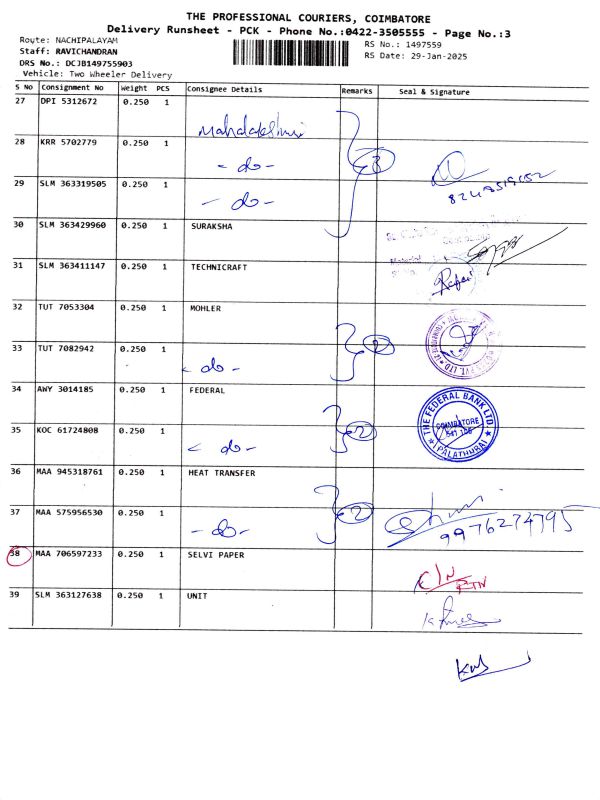 THE PROFESSIONAL COURIERS, COIMBATORE
Delivery Runsheet - PCK - Phone No.:0422-3505555 - Page No.:3
Route: NACHIPALAYAM
RS No.: 1497559
Staff: RAVICHANDRAN
RS Date: 29-Jan-2025
DRS No.: DCJB149755903
Vehicle: Two Wheeler Delivery
S No Consignment No Weight PCS Consignee Details Remarks Seal & Signature
27 DPI 5312672 0.250 1
Mahalakshmi
28 KRR 5702779 0.250 1
- do - 3
29 SLM 363319505 0.250 1
- do -
30 SLM 363429960 0.250 1 SURAKSHA
31 SLM 363411147 0.250 1 TECHNICRAFT
32 TUT 7053304 0.250 1 MOHLER
33 TUT 7082942 0.250 1 2
- do -
34 AWY 3014185 0.250 1 FEDERAL
THE FEDERAL BANK LTD.
COIMBATORE
PALATHURAI
35 KOC 61724808 0.250 1 2
- do -
36 MAA 945318761 0.250 1 HEAT TRANSFER
37 MAA 575956530 0.250 1 2
- do - 9976274795
38 MAA 706597233 0.250 1 SELVI PAPER
RTN
39 SLM 363127638 0.250 1 UNIT